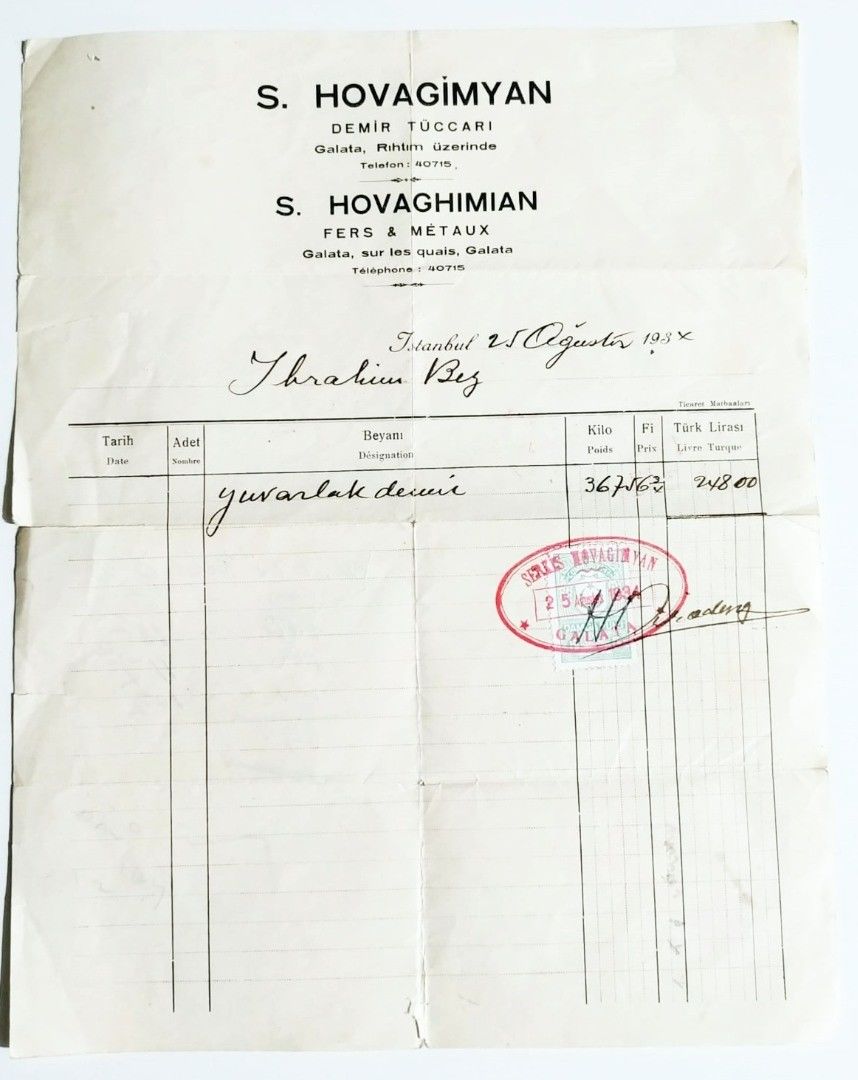 S. HOVAGİMYAN
DEMİR TÜCCARI
Galata, Rıhtım üzerinde
Telefon : 40715
S. HOVAGHIMIAN
FERS & MÉTAUX
Galata, sur les quais, Galata
Téléphone : 40715
İstanbul 25 Ağustos 1934
Ibrahim Bey
Ticaret Matbaaları
Tarih Adet Beyanı Kilo Fi Türk Lirası
Date Nombre Désignation Poids Prix Livre Turque
yuvarlak demir 367 24800
SERKİS HOVAGİMYAN
25 1934
GALATA